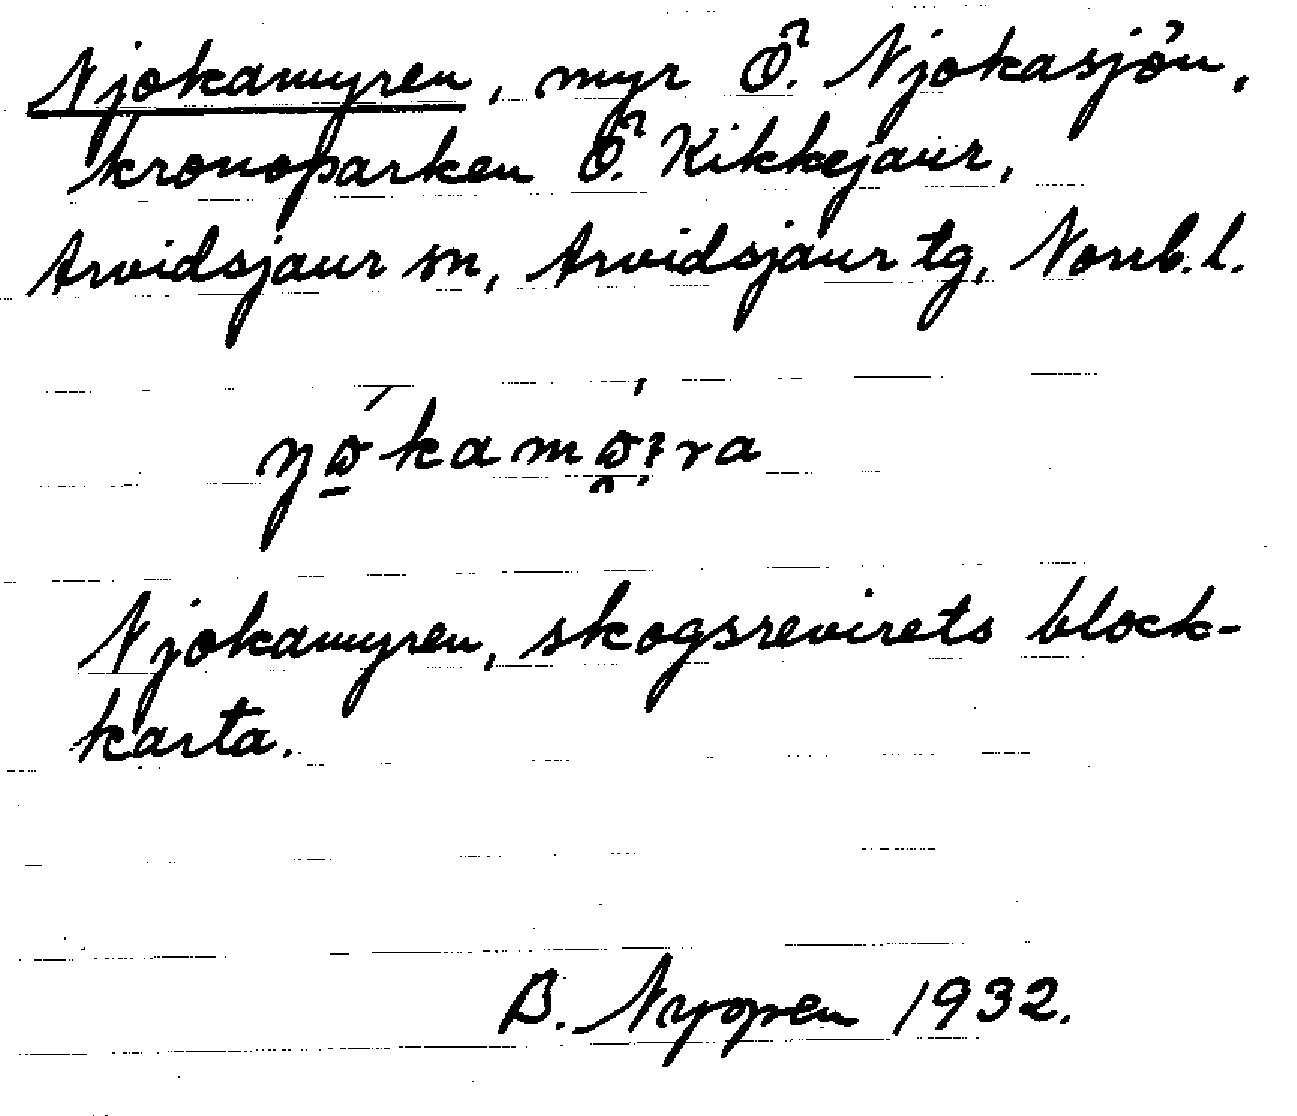 Njokamyren, myr Ö. Njokasjön,
kronoparken Ö. Kikkejaur,
Arvidsjaur sn, Arvidsjaur tg, Norrb. l.
Njokamyren, skogsrevirets block-
karta.
B. Nygren 1932.